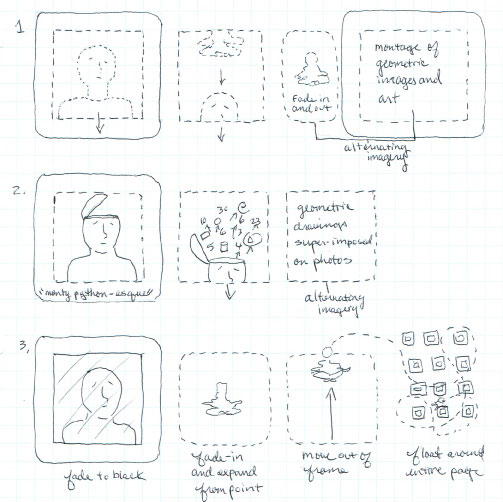 1
Fade in
and out
montage of
geometric
images and
art
alternating
imagery
2.
"monty python-esque"
geometric
drawings
super-imposed
on photos
alternating
imagery
3,
fade to black
fade-in
and expand
from point
move out of
frame
float around
entire page